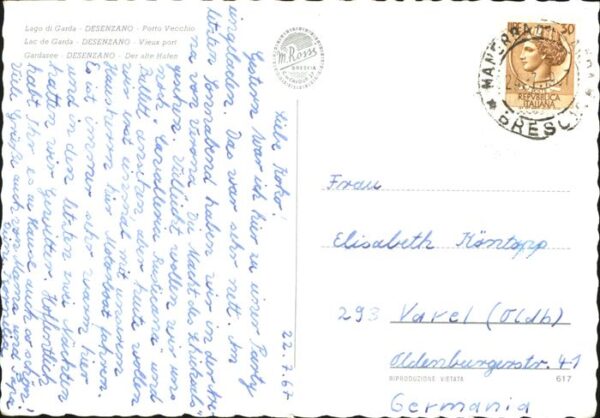 Lago di Garda - DESENZANO - Porto Vecchio
Lac de Garda - DESENZANO - Vieux port
Gardasee - DESENZANO - Der alte Hafen
m. Rossi
BRESCIA
30
REPVBBLICA
ITALIANA
MANERBA
BRESCIA
22.7.67
Gestern war ich hier zu einer Party
eingeladen. Das war sehr nett. Am
letzten Sonnabend haben wir in der Are-
na von Verona „Die Macht des Schicksals"
gesehen. Vielleicht wollen wir uns
noch „Cavalleria Rusticana" und
Ballett ansehen. Aber heute wollen
wir erst einmal mit unserem
Haus herrn hier Motorboot fahren.
Es ist immer sehr warm hier
und in den letzten zwei Nächten
hatten wir Gewitter. Hoffentlich
habt Ihr es zu Hause auch so schön.
Viele Grüße auch von Mama und
Frau
Elisabeth Köntopp
293 Varel (Oldb)
Oldenburgerstr. 41
Germania
RIPRODUZIONE VIETATA
617